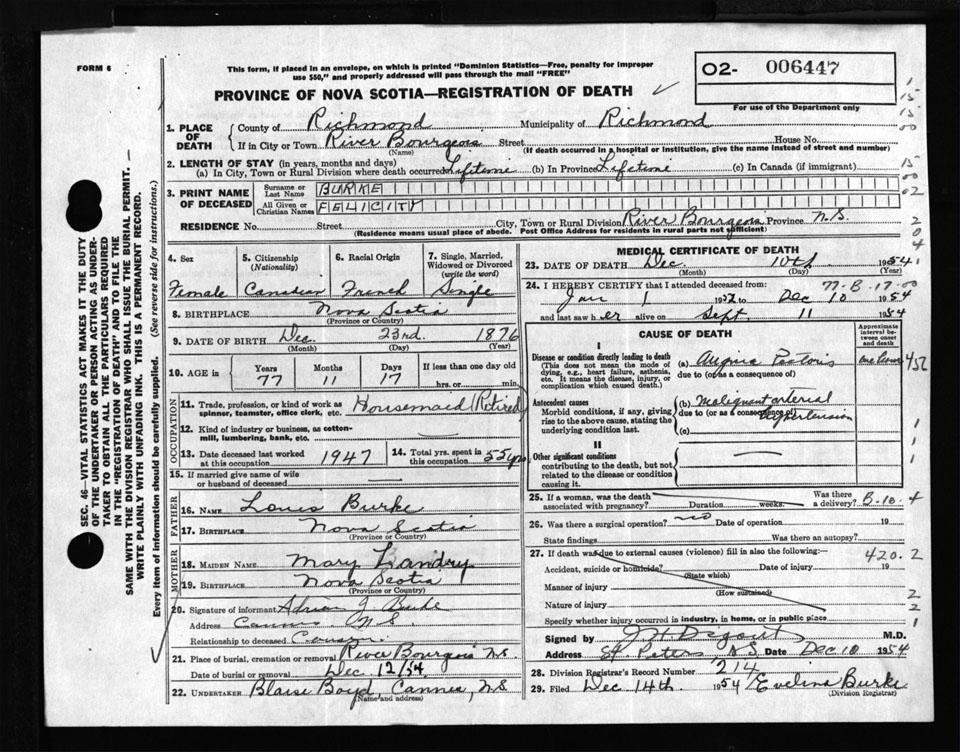 FORM 6
This form, if placed in an envelope, on which is printed "Dominion Statistics—Free, penalty for improper
use $50," and properly addressed will pass through the mail "FREE"
PROVINCE OF NOVA SCOTIA—REGISTRATION OF DEATH
02- 006447
For use of the Department only
1. PLACE OF DEATH
County of Richmond Municipality of Richmond
If in City or Town River Bourgeois Street House No.
(Name) (If death occurred in a hospital or institution, give the name instead of street and number)
2. LENGTH OF STAY (in years, months and days)
(a) In City, Town or Rural Division where death occurred Lifetime (b) In Province Lifetime (c) In Canada (if immigrant)
3. PRINT NAME OF DECEASED
Surname or Last Name BURKE
All Given or Christian Names FELICITY
RESIDENCE No. Street City, Town or Rural Division River Bourgeois Province N.S.
(Residence means usual place of abode. Post Office Address for residents in rural parts not sufficient)
4. Sex
Female
5. Citizenship (Nationality)
Canadian
6. Racial Origin
French
7. Single, Married, Widowed or Divorced (write the word)
Single
8. BIRTHPLACE Nova Scotia
(Province or Country)
9. DATE OF BIRTH Dec. 23rd. 1876
(Month) (Day) (Year)
10. AGE in Years Months Days If less than one day old
77 11 17 hrs. or min.
OCCUPATION
11. Trade, profession, or kind of work as spinner, teamster, office clerk, etc. Housemaid (Retired)
12. Kind of industry or business, as cotton-mill, lumbering, bank, etc.
13. Date deceased last worked at this occupation 1947
14. Total yrs. spent in this occupation 55 yrs.
15. If married give name of wife or husband of deceased
FATHER
16. NAME Louis Burke
17. BIRTHPLACE Nova Scotia
(Province or Country)
MOTHER
18. MAIDEN NAME Mary Landry
19. BIRTHPLACE Nova Scotia
(Province or Country)
20. Signature of informant Adrian J. Burke
Address Cannes N.S.
Relationship to deceased Cousin.
21. Place of burial, cremation or removal River Bourgeois N.S.
Date of burial or removal Dec 12/54
22. UNDERTAKER Blaise Boyd, Cannes, N.S.
(Name and address)
MEDICAL CERTIFICATE OF DEATH
23. DATE OF DEATH Dec. 10th 1954
(Month) (Day) (Year)
24. I HEREBY CERTIFY that I attended deceased from: 77-B-17-00
Jan 1 1952 to Dec 10 1954
and last saw her alive on Sept. 11 1954
CAUSE OF DEATH
Approximate interval between onset and death
I
Disease or condition directly leading to death
(This does not mean the mode of dying, e.g., heart failure, asthenia, etc. It means the disease, injury, or complication which caused death.)
(a) Angina Pectoris
due to (or as a consequence of)
Antecedent causes
Morbid conditions, if any, giving rise to the above cause, stating the underlying condition last.
(b) Malignant arterial Hypertension
due to (or as a consequence of)
(c)
II
Other significant conditions
contributing to the death, but not related to the disease or condition causing it.
25. If a woman, was the death associated with pregnancy? Duration weeks. Was there a delivery? B-10-4
26. Was there a surgical operation? no Date of operation 19
State findings Was there an autopsy?
27. If death was due to external causes (violence) fill in also the following: 420.2
Accident, suicide or homicide? Date of injury 19
(State which)
Manner of injury
(How sustained)
Nature of injury
Specify whether injury occurred in industry, in home, or in public place
Signed by J H Digout M.D.
Address St. Peters N.S. Date Dec 10 1954
28. Division Registrar's Record Number 214
29. Filed Dec 14th. 1954 Evelina Burke
(Division Registrar)
SEC. 46—VITAL STATISTICS ACT MAKES IT THE DUTY
OF THE UNDERTAKER OR PERSON ACTING AS UNDER-
TAKER TO OBTAIN ALL THE PARTICULARS REQUIRED
IN THE "REGISTRATION OF DEATH" AND TO FILE THE
SAME WITH THE DIVISION REGISTRAR WHO SHALL ISSUE THE BURIAL PERMIT.
WRITE PLAINLY WITH UNFADING INK. THIS IS A PERMANENT RECORD.
Every item of information should be carefully supplied. (See reverse side for instructions.)